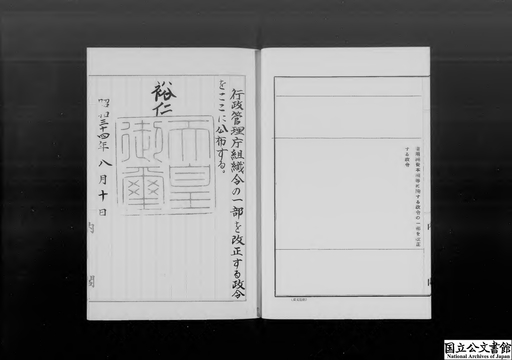 行政管理庁組織令の一部を改正する政令
をここに公布する。
裕仁
天皇
御璽
昭和三十四年八月十日
内閣
国立公文書館
National Archives of Japan